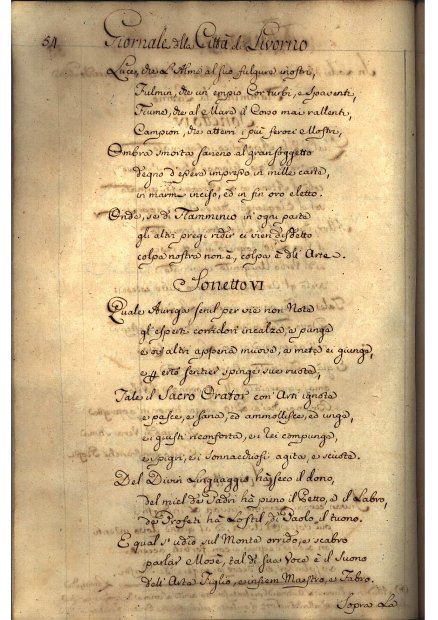 54
Giornale della Città di Livorno
Luce, che l'Alme al suo fulgure inostri,
Fulmin, che un empio Cor turbi, e spaventi,
Fiume, che al Mare il Corso mai rallenti,
Campion, che atterri i più feroci Mostri,
Ombra smorta saneno al gran soggetto
degno d'essere impresso in mille carte,
in marmi inciso, ed in fin oro eletto.
Onde, se di Flamminio in ogni parte
gli altri pregi ridir ci vien disdetto
colpa nostra non è, colpa è dell'Arte.
Sonetto VI
Quale Auriga senil per vie non Note
gl'esperti corridori incalza, e punge
e or altri appena muove, a meta ei giunge,
e erto sentier spinge sue ruote,
Tale il Sacro Orator con Arti ignote
e pasce, e sana, ed ammollisce, ed unge,
ei giusti riconforta, e i rei compunge,
e i pigri, e i sonnacchiosi agita, e scuote.
Del Divin Linguaggio ha seco il dono,
del miel de Padri ha pieno il Petto, e il Labro,
de Profeti ha lo stil, di Paolo, il tuono.
E qual s'udio sul Monte orrido, e scabro
parlar Mosè, tal di sua Voce è il Suono
dell'Arte Figlio, e insiem Maestro, e Fabro.
Sopra La